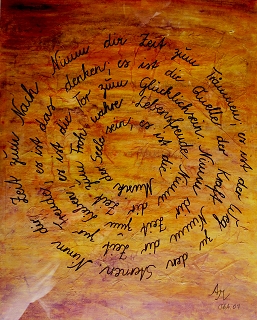 Nimm dir Zeit zum Träumen, es ist der Weg zu den Sternen. Nimm dir Zeit zum Nach denken, es ist die Quelle der Kraft Nimm dir Zeit zur Freude, es ist das Tor zum Glücklichsein Nimm dir Zeit zum Leben, es ist die wahre Lebensfreude Nimm dir Zeit zum Frohsein, es ist die Musik der Seele